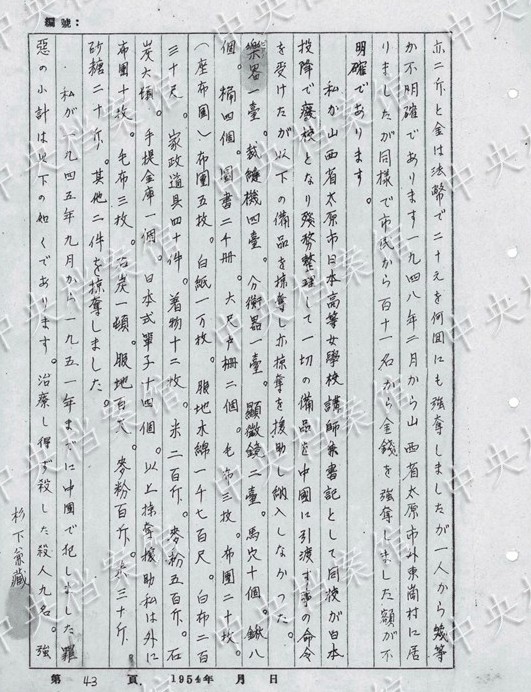 編號：
亦二斤と金は法幣で二十元を何囬にも強奪しましたが一人から幾等
か不明確であります一九四八年二月から山西省太原市外東崗村に居
りましたが同様で市民から百十一名から金錢を強奪しました額が不
明確であります。
私が山西省太原市日本高等女學校講師兼書記として同波が日本
投降で廢校となり殘務整理して一切の備品を中國に引渡す事の命令
を受けたが以下の備品を掠奪し亦掠奪を援助し納入しなかつた。
樂器一臺。裁縫機四臺。分銜器一臺。顯微鏡二臺。馬穴十個。鍬八
個。桶四個。圖書二千冊。大尺戸柵二個。毛布三枚。布團二十枚。
（座布團）布團五枚。白紙一万枚。服地木綿一千七百尺。白布二百
三十尺。家政道具四十件。着物十二枚。米二百斤。麥粉五百斤。石
炭六頓。手提金庫一個。日本式單子十四個。以上掠奪援助私は外に
布團十枚。毛布三枚。石炭一頓。服地百尺。麥粉百斤。三十斤
砂糖二十斤。其他二件を掠奪しました。
私が一九四五年九月から一九五一年までに中國で犯しました罪
惡の小計は以下の如くであります。治療し得ず殺した殺人九名。強
杉下兼藏
第 43 頁. 1954年 月 日
中央档案馆